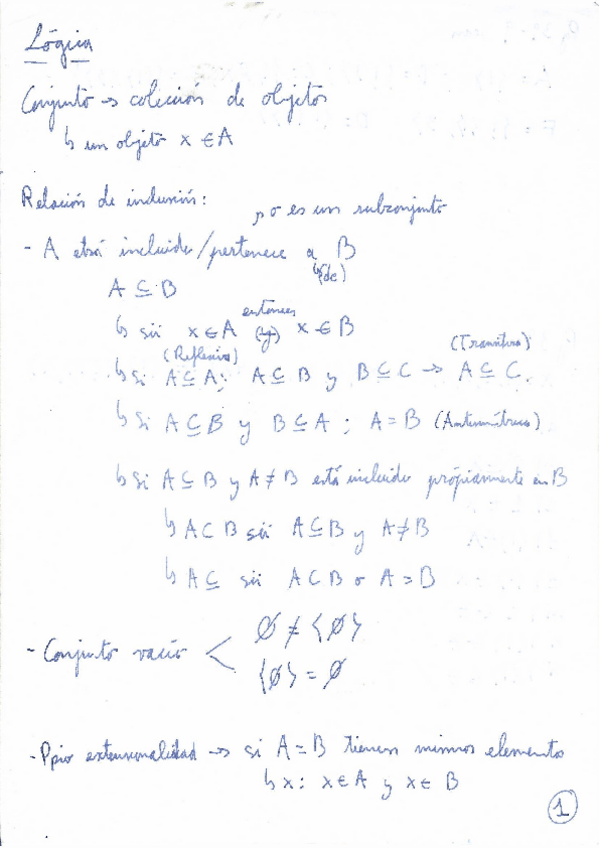 Lógica
Conjunto → colección de objetos
↳ un objeto x ∈ A
Relación de inclusión:
↱ o es un subconjunto
- A está incluido/pertenece a B
↳(de)
A ⊆ B
↳ sii x ∈ A entonces (→) x ∈ B
(Reflexiva) (Transitiva)
↳ si A ⊆ A; A ⊆ B y B ⊆ C → A ⊆ C.
↳ si A ⊆ B y B ⊆ A ; A = B (Antisimétrica)
↳ si A ⊆ B y A ≠ B está incluido propiamente en B
↳ A ⊂ B sii A ⊆ B y A ≠ B
↳ A ⊆ sii A ⊂ B o A = B
∅ ≠ {∅}
- Conjunto vacío <
{∅} = ∅
- Ppio extensionalidad → si A = B tienen mismos elementos
↳ x: x ∈ A y x ∈ B
1